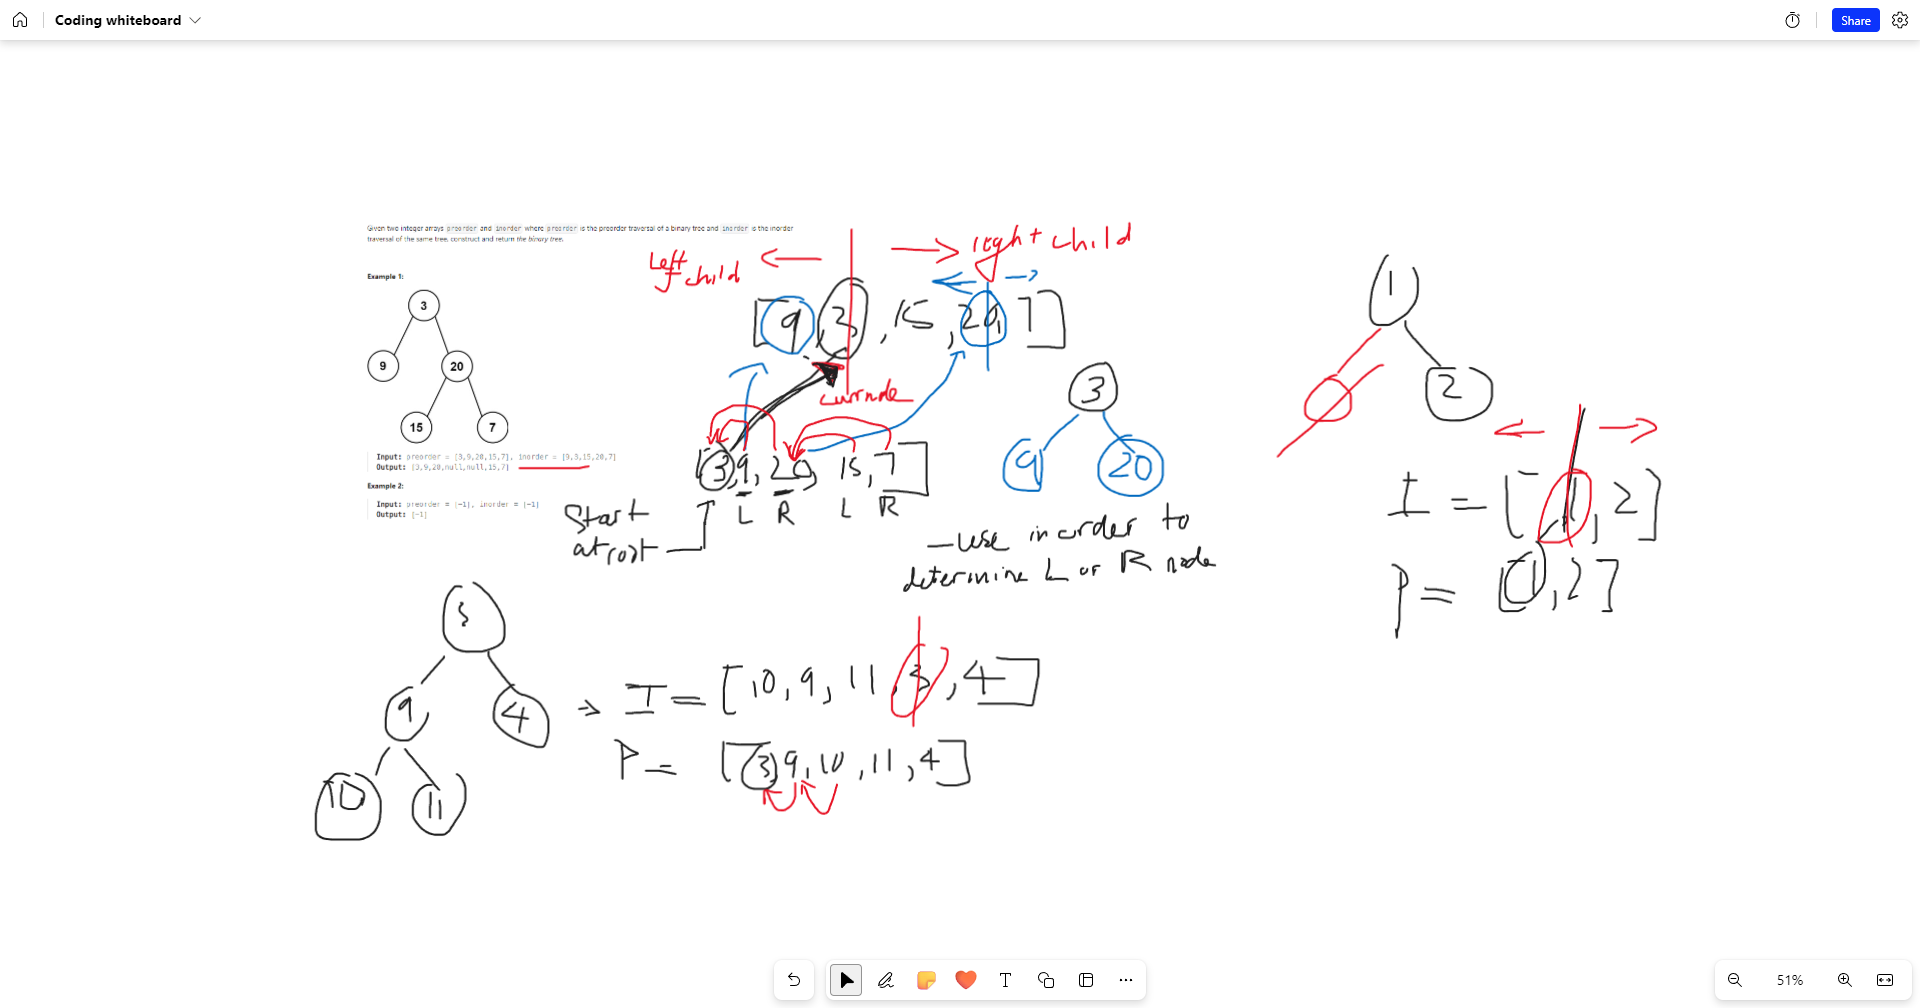 Coding whiteboard
Share
Given two integer arrays preorder and inorder where preorder is the preorder traversal of a binary tree and inorder is the inorder
traversal of the same tree, construct and return the binary tree.
Example 1:
3
9
20
15
7
Input: preorder = [3,9,20,15,7], inorder = [9,3,15,20,7]
Output: [3,9,20,null,null,15,7]
Example 2:
Input: preorder = [-1], inorder = [-1]
Output: [-1]
Left child
right child
[9,3,15,20,7]
currnode
[3,9,20,15,7]
L R L R
Start
at root
3
9
20
- use inorder to
determine L or R node
1
2
I = [1,2]
P = [1,2]
3
9
4
10
11
I = [10,9,11,3,4]
P = [3,9,10,11,4]
51%